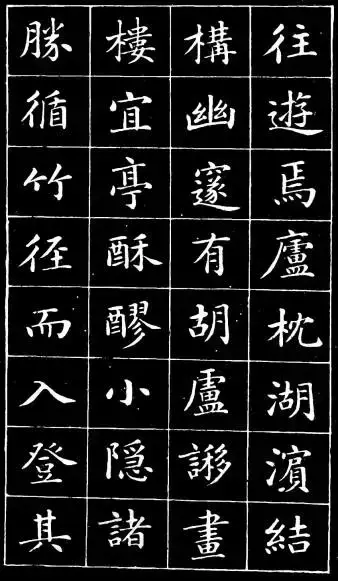 往遊焉廬枕湖濱結
構幽邃有胡盧謻畫
樓宜亭酥醪小隱諸
勝循竹徑而入登其